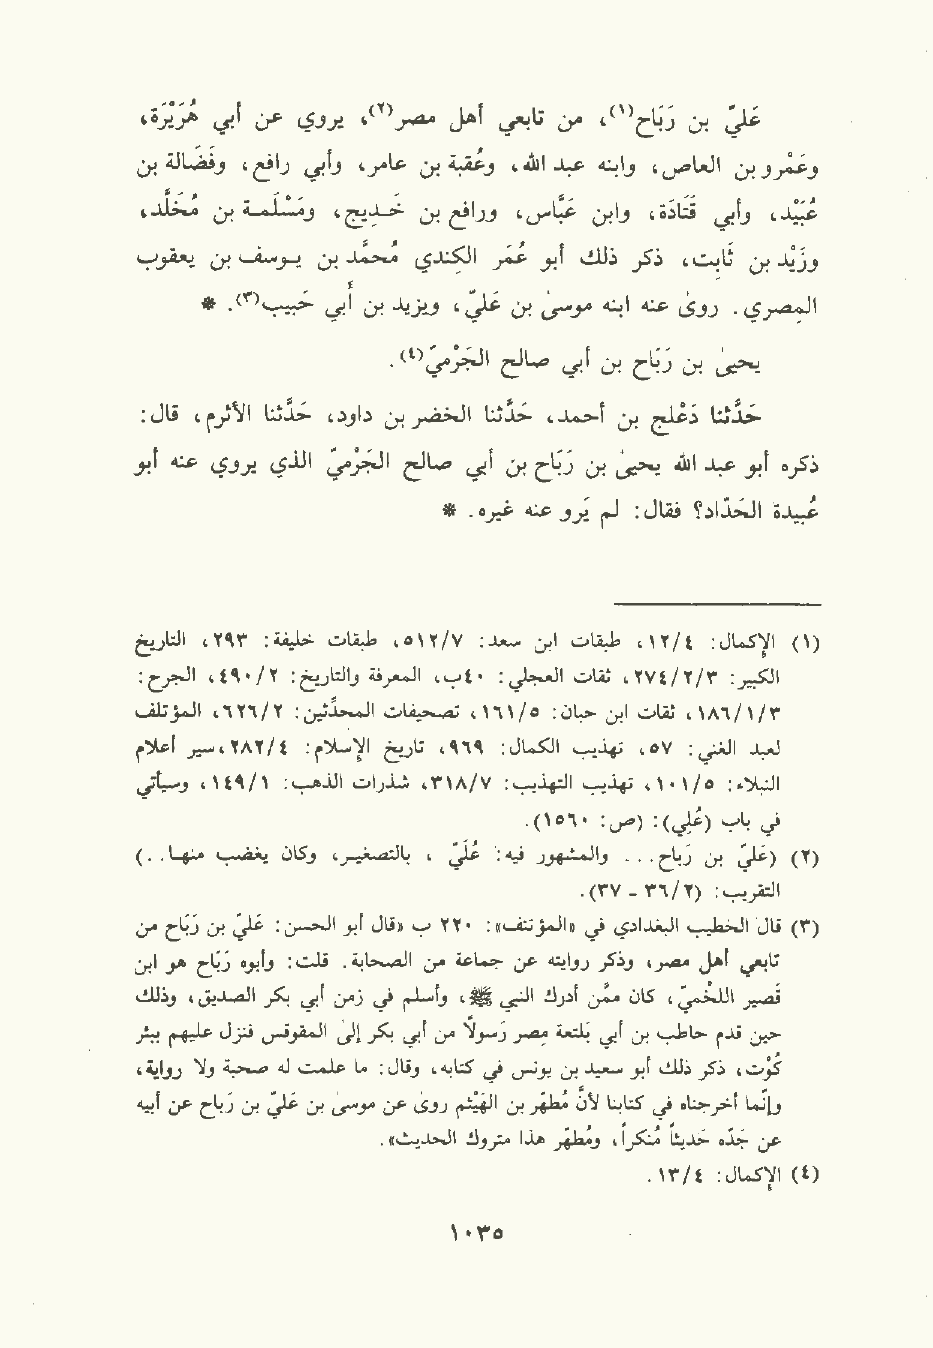 عَليّ بن رَبَاح(١)، من تابعي أهل مصر(٢)، يروي عن أبي هُرَيْرَة،
وعَمْرو بن العاص، وابنه عبد الله، وعُقبَة بن عامر، وأبي رافع، وفَضَالة بن
عُبَيْد، وأبي قَتَادَة، وابن عَبَّاس، ورافع بن خَـدِيج، ومَسْلَمـة بن مُخَلَّد،
وزَيْد بن ثَابِت، ذكر ذلك أبو عُمَر الكندي مُحَمد بن يـوسف بن يعقوب
المِصري. روىٰ عنه ابنه موسىٰ بن عَليّ، ويزيد بن أبي حَبيب(٣). *
يحيىٰ بن رَبَاح بن أبي صالح الجَرْميّ(٤).
حَدّثنا دَعْلج بن أحمد، حَدّثنا الخضر بن داود، حَدّثنا الأثرم، قال:
ذكره أبو عبد الله يحيىٰ بن رَبَاح بن أبي صالح الجَرْميّ الذي يروي عنه أبو
عُبيدة الحَدّاد؟ فقال: لم يَرو عنه غيره. *
(١) الإكمال: ١٢/٤، طبقات ابن سعد: ٥١٢/٧، طبقات خليفة: ٢٩٣، التاريخ
الكبير: ٢٧٤/٢/٣، ثقات العجلي: ٤٠ب، المعرفة والتاريخ: ٤٩٠/٢، الجرح:
١٨٦/١/٣، ثقات ابن حبان: ١٦١/٥، تصحيفات المحدّثين: ٦٢٦/٢، المؤتلف
لعبد الغني: ٥٧، تهذيب الكمال: ٩٦٩، تاريخ الإسلام: ٢٨٢/٤، سير أعلام
النبلاء: ١٠١/٥، تهذيب التهذيب: ٣١٨/٧، شذرات الذهب: ١٤٩/١، وسيأتي
في باب (عُلِي): (ص: ١٥٦٠).
(٢) (عَليّ بن رَباح... والمشهور فيه: عُليّ ، بالتصغير، وكان يغضب منها. .)
التقريب: (٣٦/٢ - ٣٧).
(٣) قال الخطيب البغدادي في «المؤتنف»: ٢٢٠ ب «قال أبو الحسن: عَليّ بن رَبَاح من
تابعي أهل مصر، وذكر روايته عن جماعة من الصحابة. قلت: وأبوه رَبَاح هو ابن
قَصير اللَّخْميّ، كان ممن أدرك النبي ﷺ، وأسلم في زمن أبي بكر الصديق، وذلك
حين قدم حاطب بن أبي بَلتعة مِصر رَسولًا من أبي بكر إلىٰ المقوقس فنزل عليهم ببئر
كُوْت، ذكر ذلك أبو سعيد بن يونس في كتابه، وقال: ما علمت له صحبة ولا رواية،
وإنّما أخرجناه في كتابنا لأنّ مُطَهّر بن الهَيْثم روىٰ عن موسىٰ بن عَليّ بن رباح عن أبيه
عن جَدّه حَديثًا مُنكرًا، ومُطَهّر هذا متروك الحديث».
(٤) الإكمال: ١٣/٤.
١٠٣٥